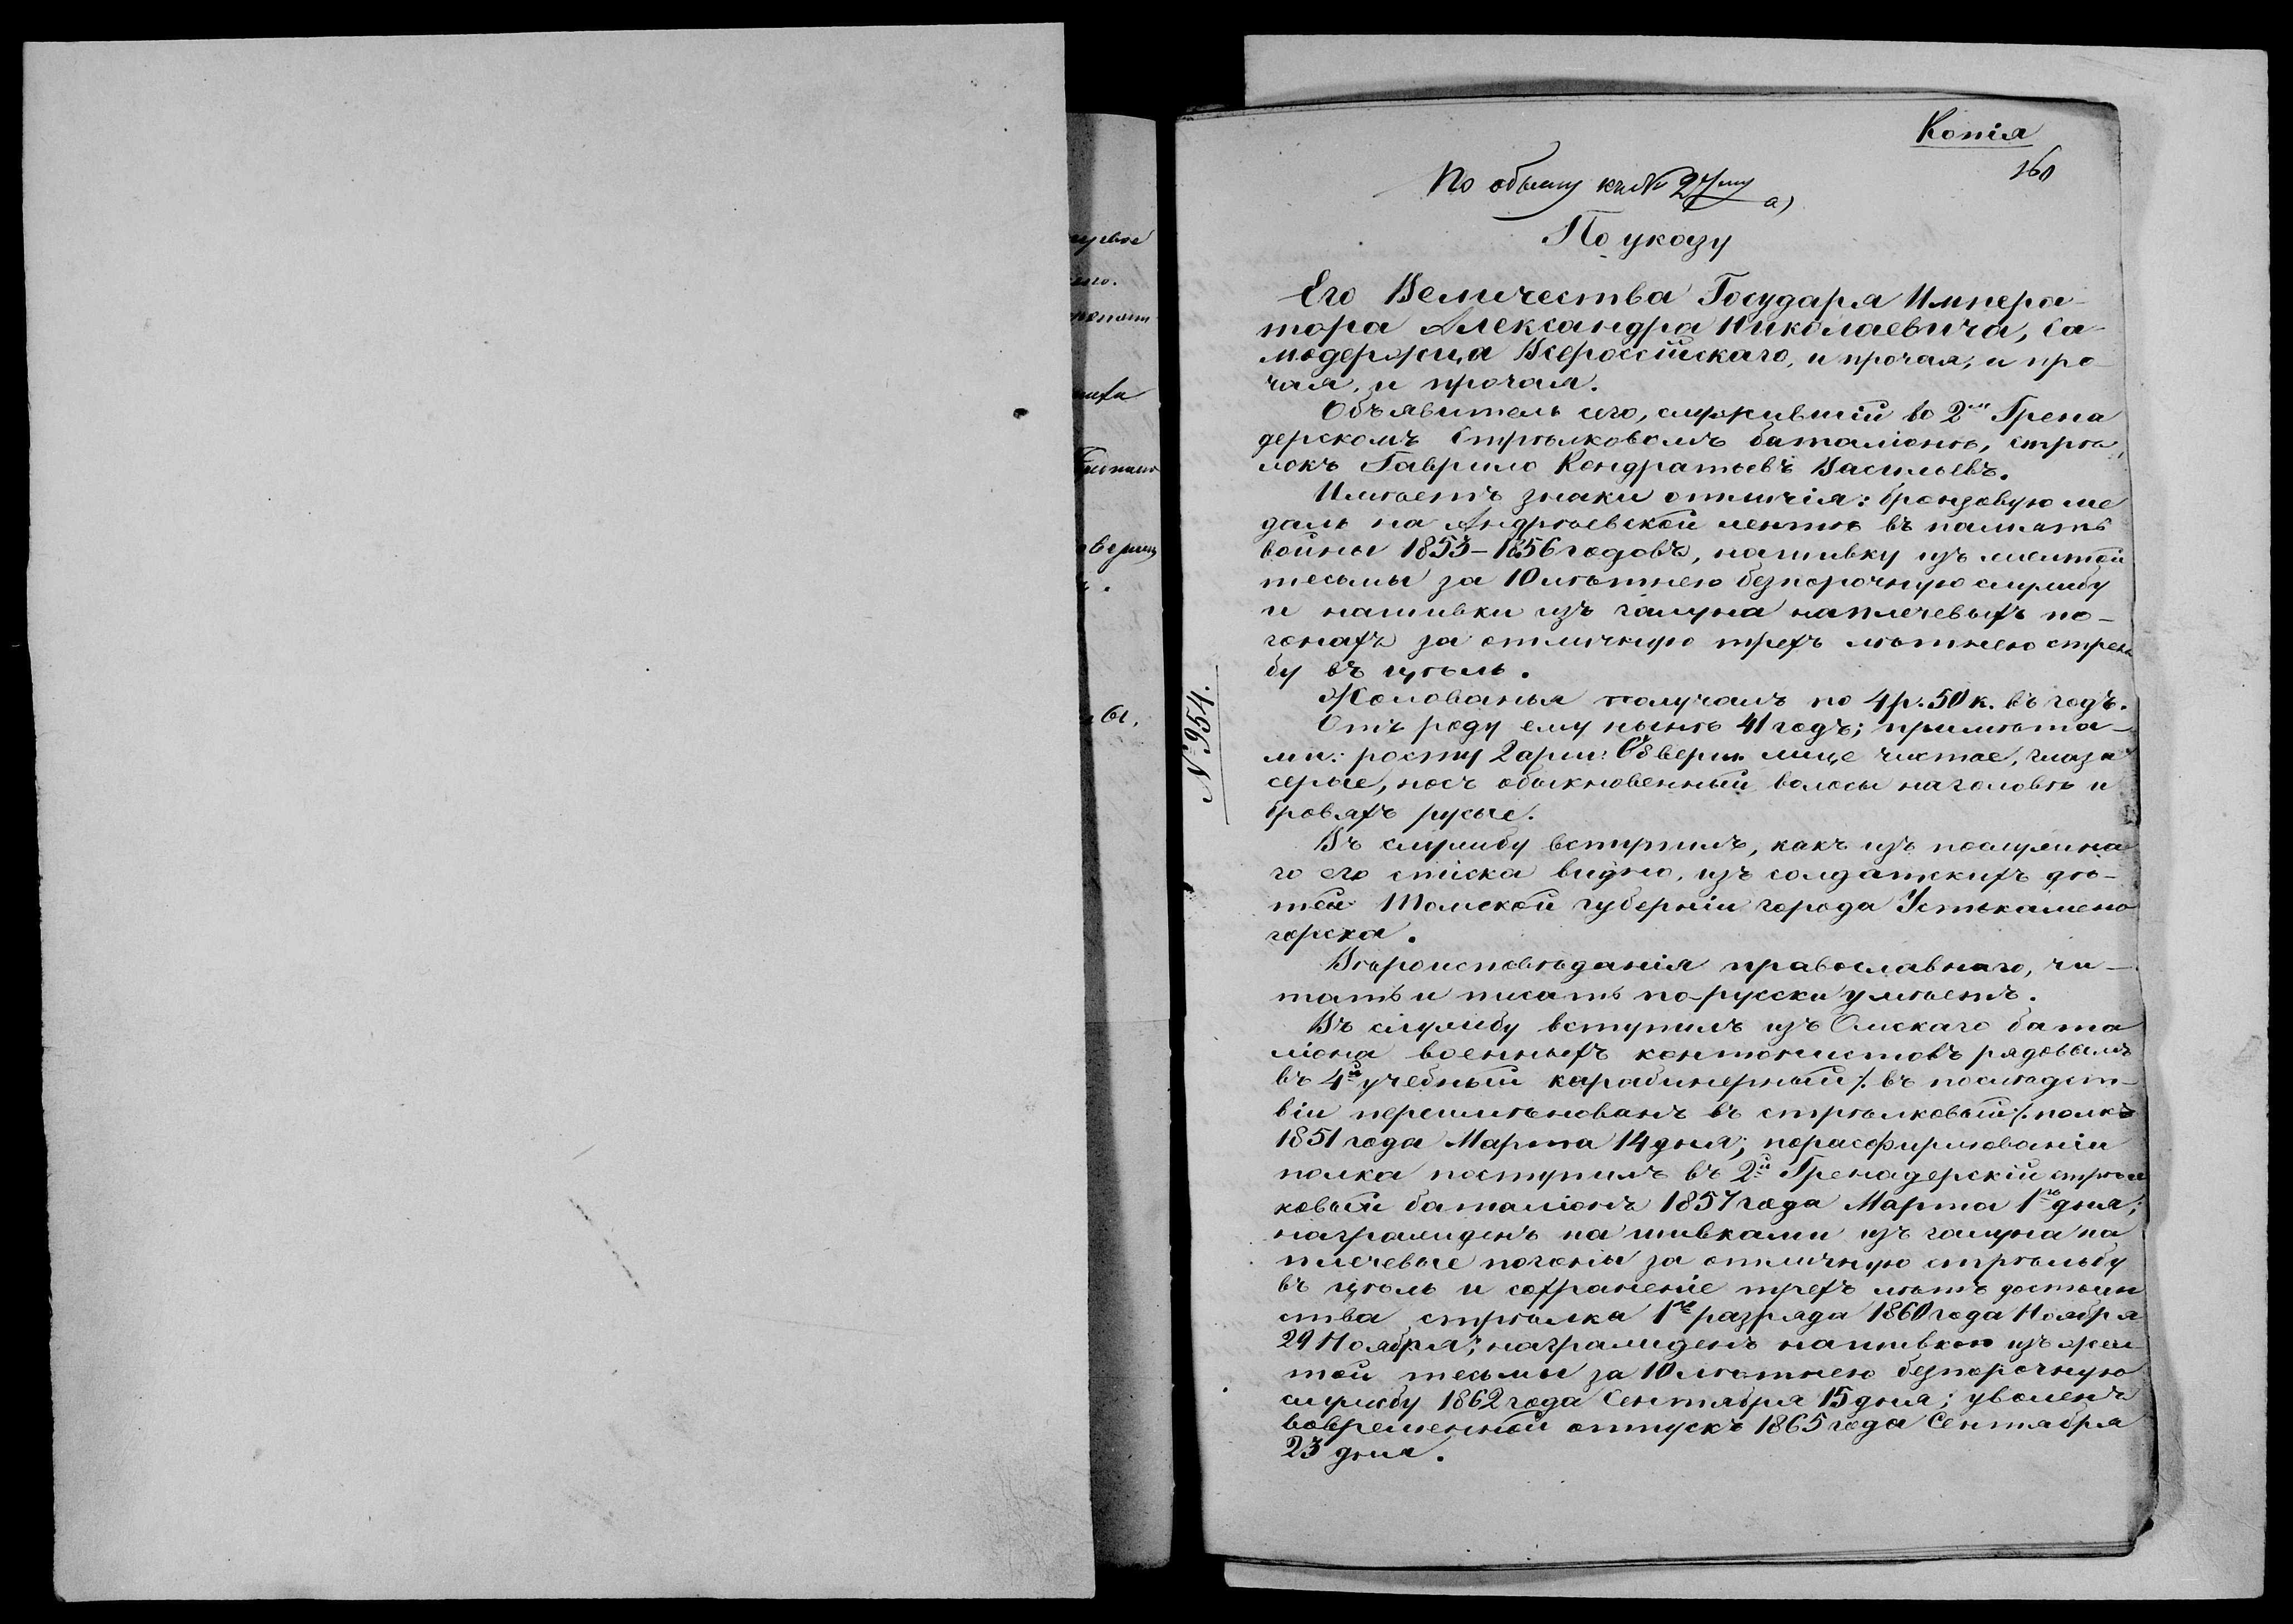 Копія
160
По обыску къ № 27му а)
По указу
Его Величества Государя Импера-
тора Александра Николаевича, Са-
модержца Всероссійскаго, и прочая, и про-
чая, и прочая.
Объявитель сего, служившій во 2мъ Грена
дерскомъ Стрѣлковомъ баталіонѣ, стрѣ-
локъ Гаврило Кондратьевъ Васильевъ.
Имѣетъ знаки отличія: бронзовую ме
даль на Андрѣевской лентѣ въ память
войны 1853-1856 годовъ, нашивку изъ желтой
тесьмы за 10 лѣтнею безпорочную службу
и нашивки изъ галуна на плечевыхъ по-
гонахъ за отличную трехъ лѣтнею стрель
бу въ цѣль.
Жалованья получалъ по 4 р. 50 к. въ годъ.
Отъ роду ему нынѣ 41 годъ; примѣта-
ми: росту 2 арш: вер. лице чистое, глаза
серые, носъ обыкновенный волосы на головѣ и
бровяхъ русые.
Въ службу вступилъ, какъ изъ послужна
го его списка видно, изъ солдатскихъ дѣ-
тей Томской губерніи города Устькамено
горска.
Вѣроисповѣданія православнаго, чи-
тать и писать по-русски умѣетъ.
Въ службу вступилъ изъ Омскаго бата
ліона военныхъ кантонистовъ рядовымъ
въ 4й учебный карабинерный /. въ послѣдст-
віи переименованъ въ стрѣлковый /. полкъ
1851 года Марта 14 дня; по расформированіи
полка поступилъ въ 2й Гренадерскій стрѣл
ковый баталіонъ 1857 года Марта 1го дня;
награжденъ на шивками изъ галуна на
плечевые погоны за отличную стрѣльбу
въ цѣль и сохраненіе трехъ лѣтъ достоин
ства стрѣлка 1го разряда 1860 года Ноября
29 Ноября; награжденъ нашивкою изъ жел
той тесьмы за 10 лѣтнею безпорочную
службу 1862 года Сентября 15 дня; уволенъ
вовременной отпускъ 1865 года Сентября
23 дня.
№ 954.